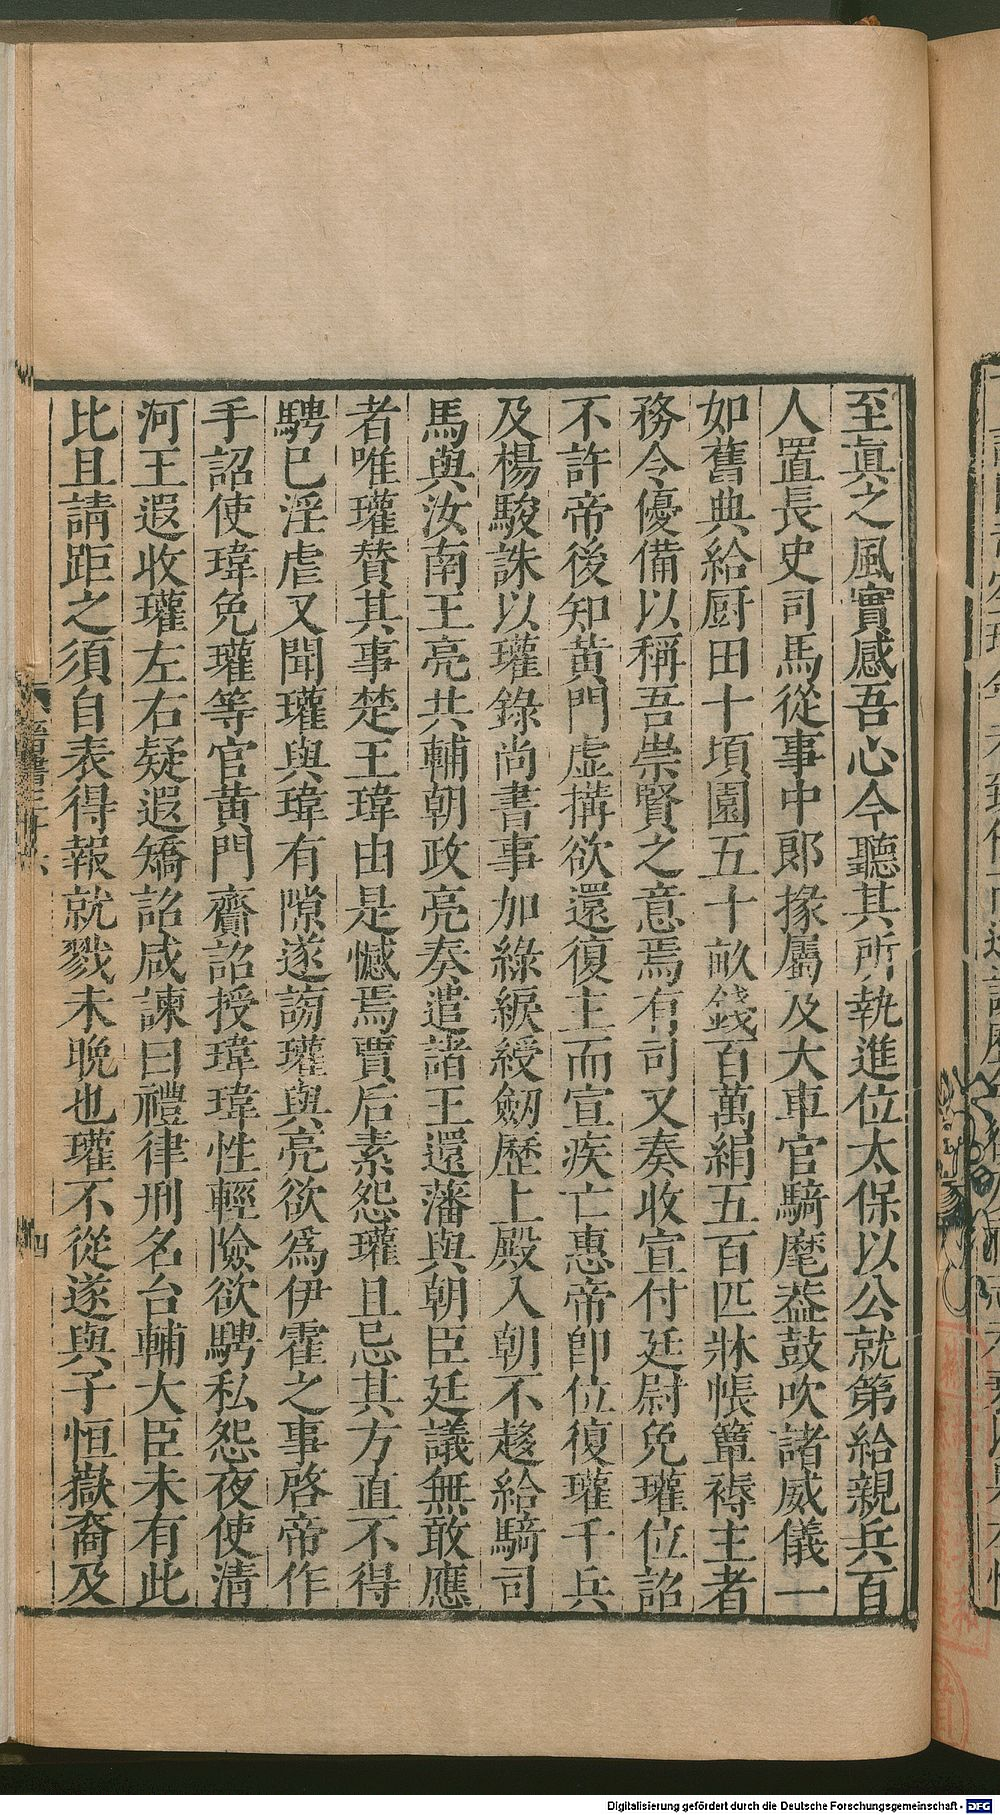 至眞之風實感吾心今聽其所執進位太保以公就第給親兵百
人置長史司馬從事中郞掾屬及大車官騎麾葢鼓吹諸威儀一
如舊典給厨田十頃園五十畝錢百萬絹五百匹牀帳簟褥主者
務令優備以稱吾崇賢之意焉有司又奏收宣付廷尉免瓘位詔
不許帝後知黃門虛搆欲還復主而宣疾亡惠帝卽位復瓘千兵
及楊駿誅以瓘錄尚書事加綠綟綬劒歷上殿入朝不趍給騎司
馬與汝南王亮共輔朝政亮奏遣諸王還藩與朝臣廷議無敢應
者唯瓘贊其事楚王瑋由是憾焉賈后素怨瓘且忌其方直不得
騁已淫虐又聞瓘與瑋有隙遂謗瓘與亮欲爲伊霍之事啓帝作
手詔使瑋免瓘等官黃門齎詔授瑋瑋性輕險欲騁私怨夜使清
河王遐收瓘左右疑遐矯詔咸諫曰禮律刑名台輔大臣未有此
比且請距之須自表得報就戮未晚也瓘不從遂與子恒嶽裔及
晉書三十六
四
Digitalisierung gefördert durch die Deutsche Forschungsgemeinschaft - DFG